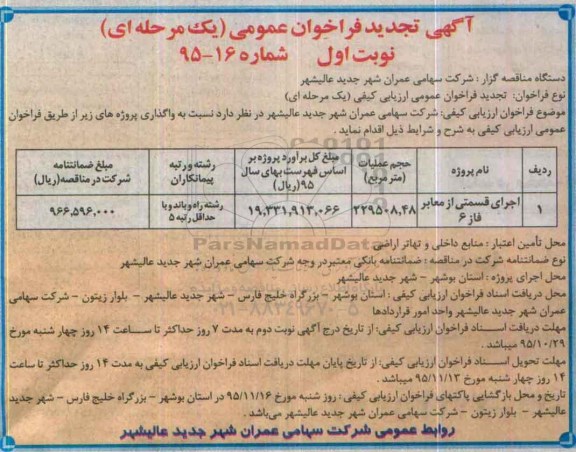 آگهی تجدید فراخوان عمومی (یک مرحله ای)
نوبت اول شماره ۱۶-۹۵
دستگاه مناقصه گزار : شرکت سهامی عمران شهر جدید عالیشهر
نوع فراخوان: تجدید فراخوان عمومی ارزیابی کیفی (یک مرحله ای)
موضوع فراخوان ارزیابی کیفی: شرکت سهامی عمران شهر جدید عالیشهر در نظر دارد نسبت به واگذاری پروژه های زیر از طریق فراخوان
عمومی ارزیابی کیفی به شرح و شرایط ذیل اقدام نماید .
ردیف نام پروژه حجم عملیات (متر مربع) مبلغ کل برآورد پروژه بر اساس فهرست بهای سال ۹۵(ریال) رشته و رتبه پیمانکاران مبلغ ضمانتنامه شرکت در مناقصه(ریال)
۱ اجرای قسمتی از معابر فاز ۶ ۲۲۹۵۰۸,۴۸ ۱۹,۳۳۱,۹۱۳,۰۶۶ رشته راه و باند و با حداقل رتبه ۵ ۹۶۶,۵۹۶,۰۰۰
محل تأمین اعتبار : منابع داخلی و تهاتر اراضی
نوع ضمانتنامه شرکت در مناقصه : ضمانتنامه بانکی معتبر در وجه شرکت سهامی عمران شهر جدید عالیشهر
محل اجرای پروژه : استان بوشهر - شهر جدید عالیشهر
محل دریافت اسناد فراخوان ارزیابی کیفی : استان بوشهر - بزرگراه خلیج فارس - شهر جدید عالیشهر - بلوار زیتون - شرکت سهامی
عمران شهر جدید عالیشهر واحد امور قراردادها
مهلت دریافت اسناد فراخوان ارزیابی کیفی: از تاریخ درج آگهی نوبت دوم به مدت ۷ روز حداکثر تا ساعت ۱۴ روز چهار شنبه مورخ
۹۵/۱۰/۲۹ میباشد .
مهلت تحویل اسناد فراخوان ارزیابی کیفی: از تاریخ پایان مهلت دریافت اسناد فراخوان ارزیابی کیفی به مدت ۱۴ روز حداکثر تا ساعت
۱۴ روز چهار شنبه مورخ ۹۵/۱۱/۱۳ میباشد .
تاریخ و محل بازگشایی پاکتهای فراخوان ارزیابی کیفی : روز شنبه مورخ ۹۵/۱۱/۱۶ در استان بوشهر - بزرگراه خلیج فارس - شهر جدید
عالیشهر - بلوار زیتون - شرکت سهامی عمران شهر جدید عالیشهر می‌باشد .
روابط عمومی شرکت سهامی عمران شهر جدید عالیشهر
ParsNamadData